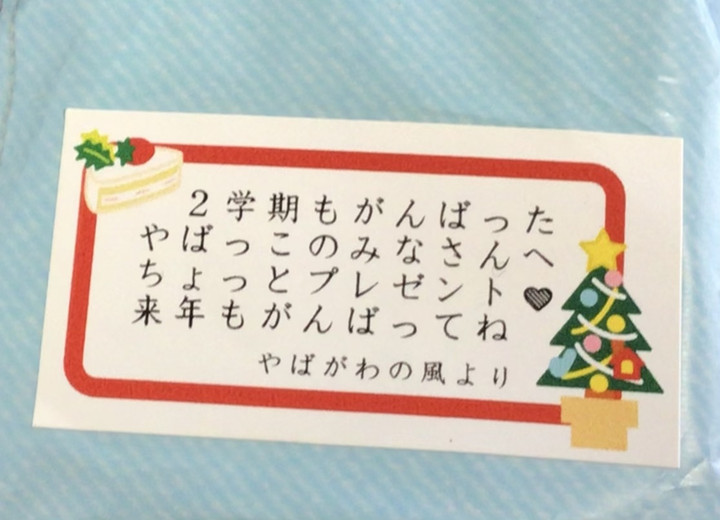 2学期もがんばった
やばっこのみなさんへ
ちょっとプレゼント♥
来年もがんばってね
やばがわの風より